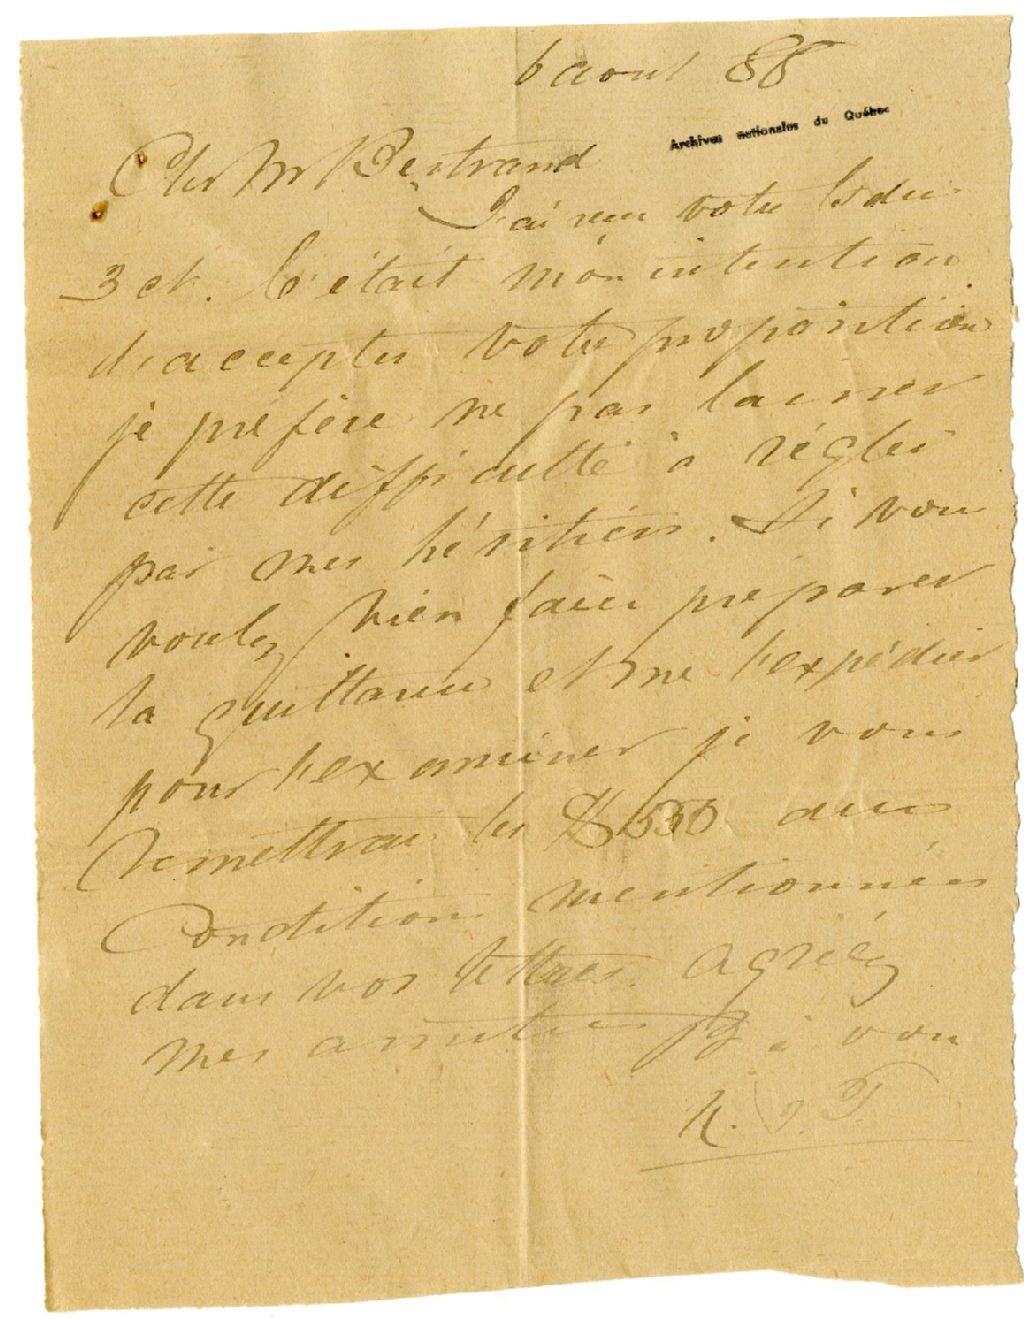 6 aout 88
Archives nationales du Québec
Cher Mr Bertrand
J'ai reçu votre du
3 ct. C'était mon intention
d'accepter votre proposition
je préfère ne pas laisser
cette difficulté à régler
par mes héritiers. Si vous
voulez bien faire préparer
la quittance et me l'expédier
pour l'examiner je vous
remettrai les $550 aux
Conditions mentionnées
dans vos lettres. Agréez
mes amitiés